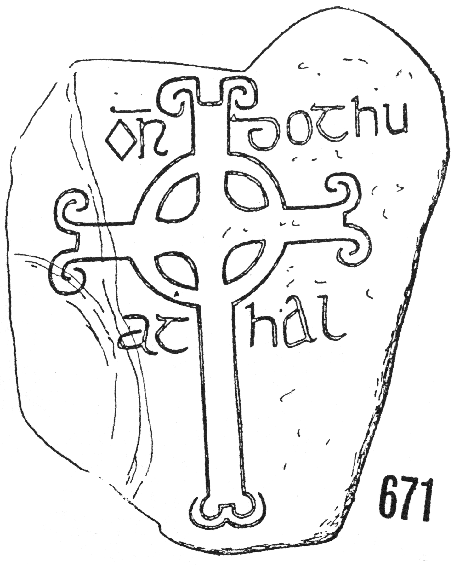 ōr dothu
athal
671